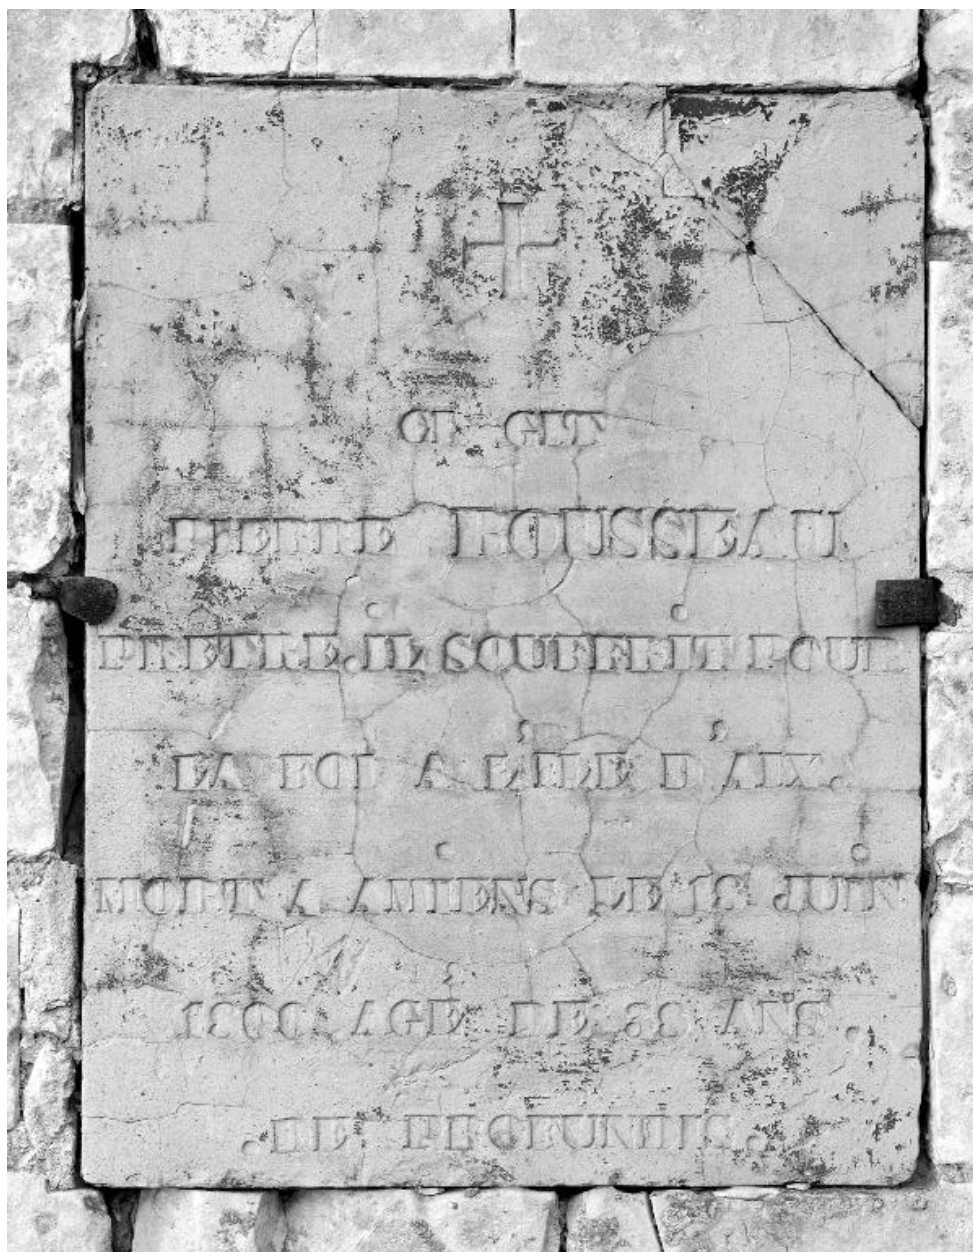 CI GIT
PIERRE ROUSSEAU
PRETRE. IL SOUFFRIT POUR
LA FOI A L'ILE D'AIX.
MORT A AMIENS LE 13 JUIN
AGÉ DE ANS.
DE PROFUNDIS.